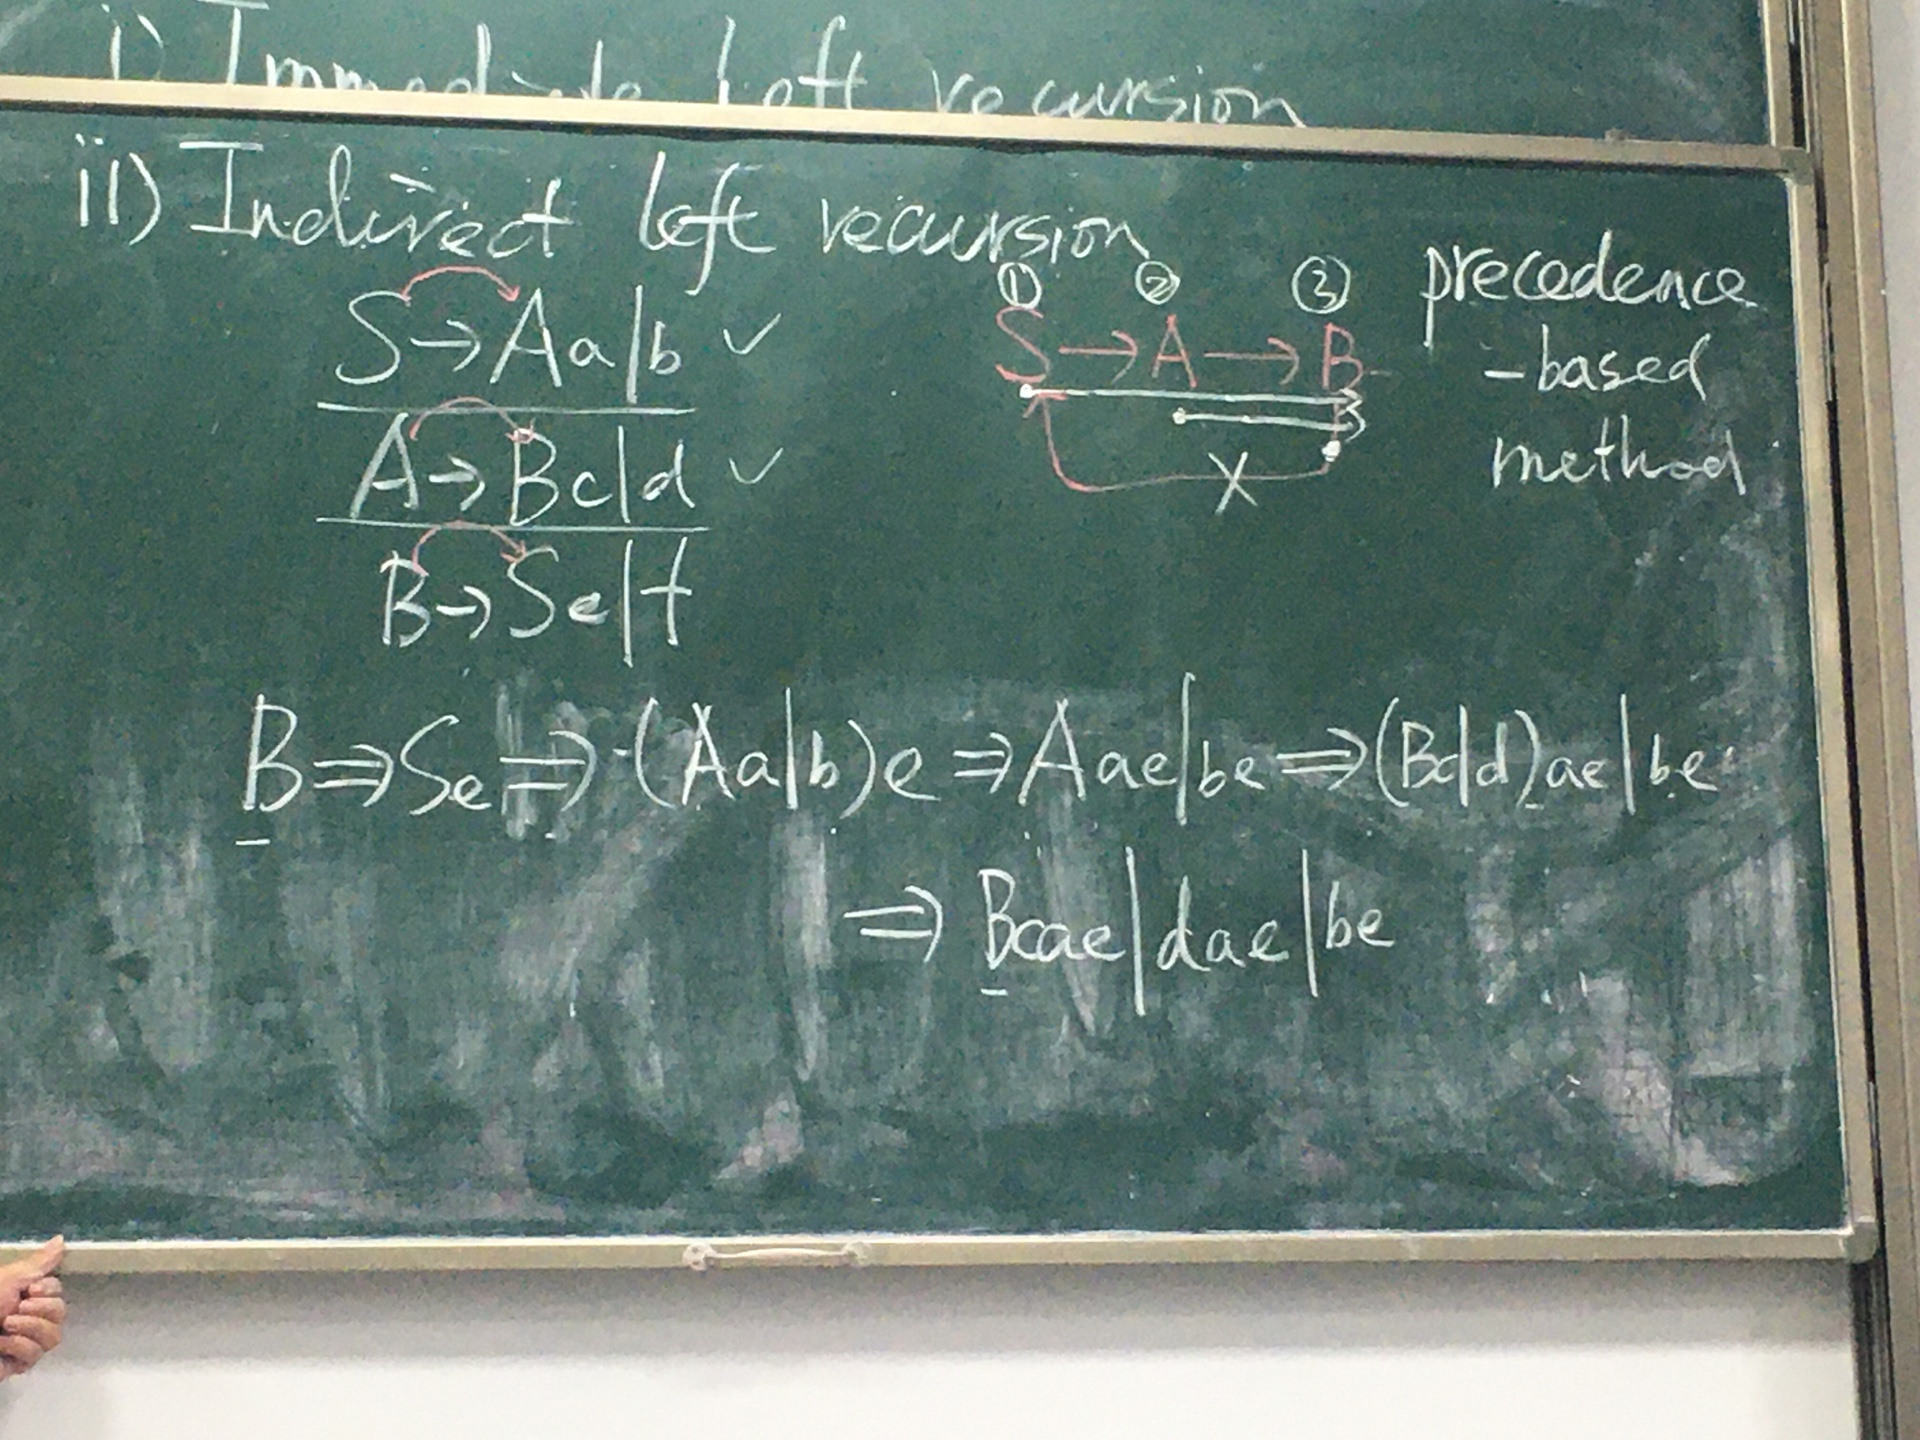 i) Immediate left recursion
ii) Indirect left recursion
S → Aa|b ✓
A → Bc|d ✓
B → Se|f
① ② ③
S → A → B
X
precedence
-based
method
B ⇒ Se ⇒ (Aa|b)e ⇒ Aae|be ⇒ (Bc|d)ae|be
⇒ Bcae|dae|be